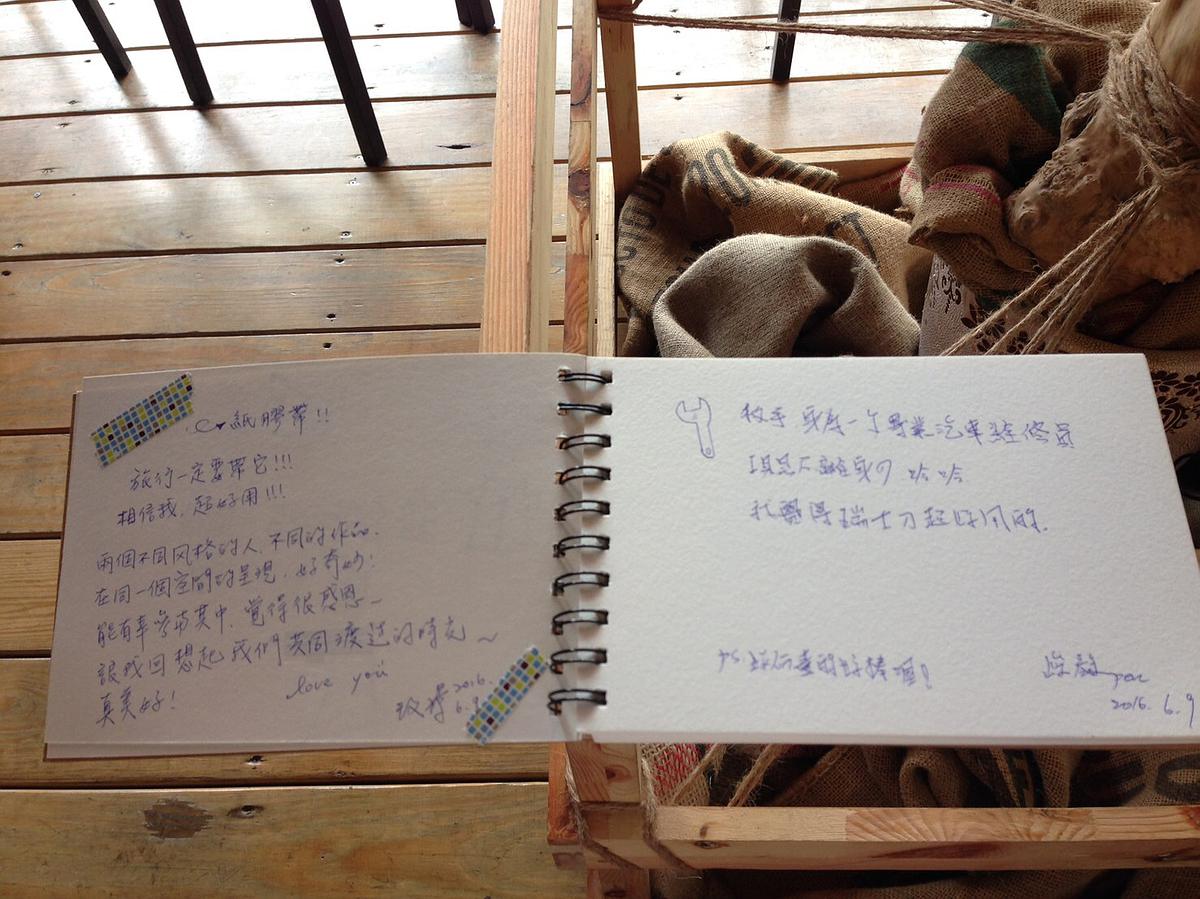 紙膠帶!!
旅行一定要帶它!!!
相信我，超好用!!!
兩個不同风格的人，不同的作品.
在同一個空間的呈現，好奇妙!
能有幸參与其中，覺得很感恩~
讓我回想起我們共同渡过的時光~
真美好!
love you
2016.
6.9
扳手 身為一个專業汽車維修員
瑞士刀超好用的.
PS 好棒喔!
2016. 6.9
10